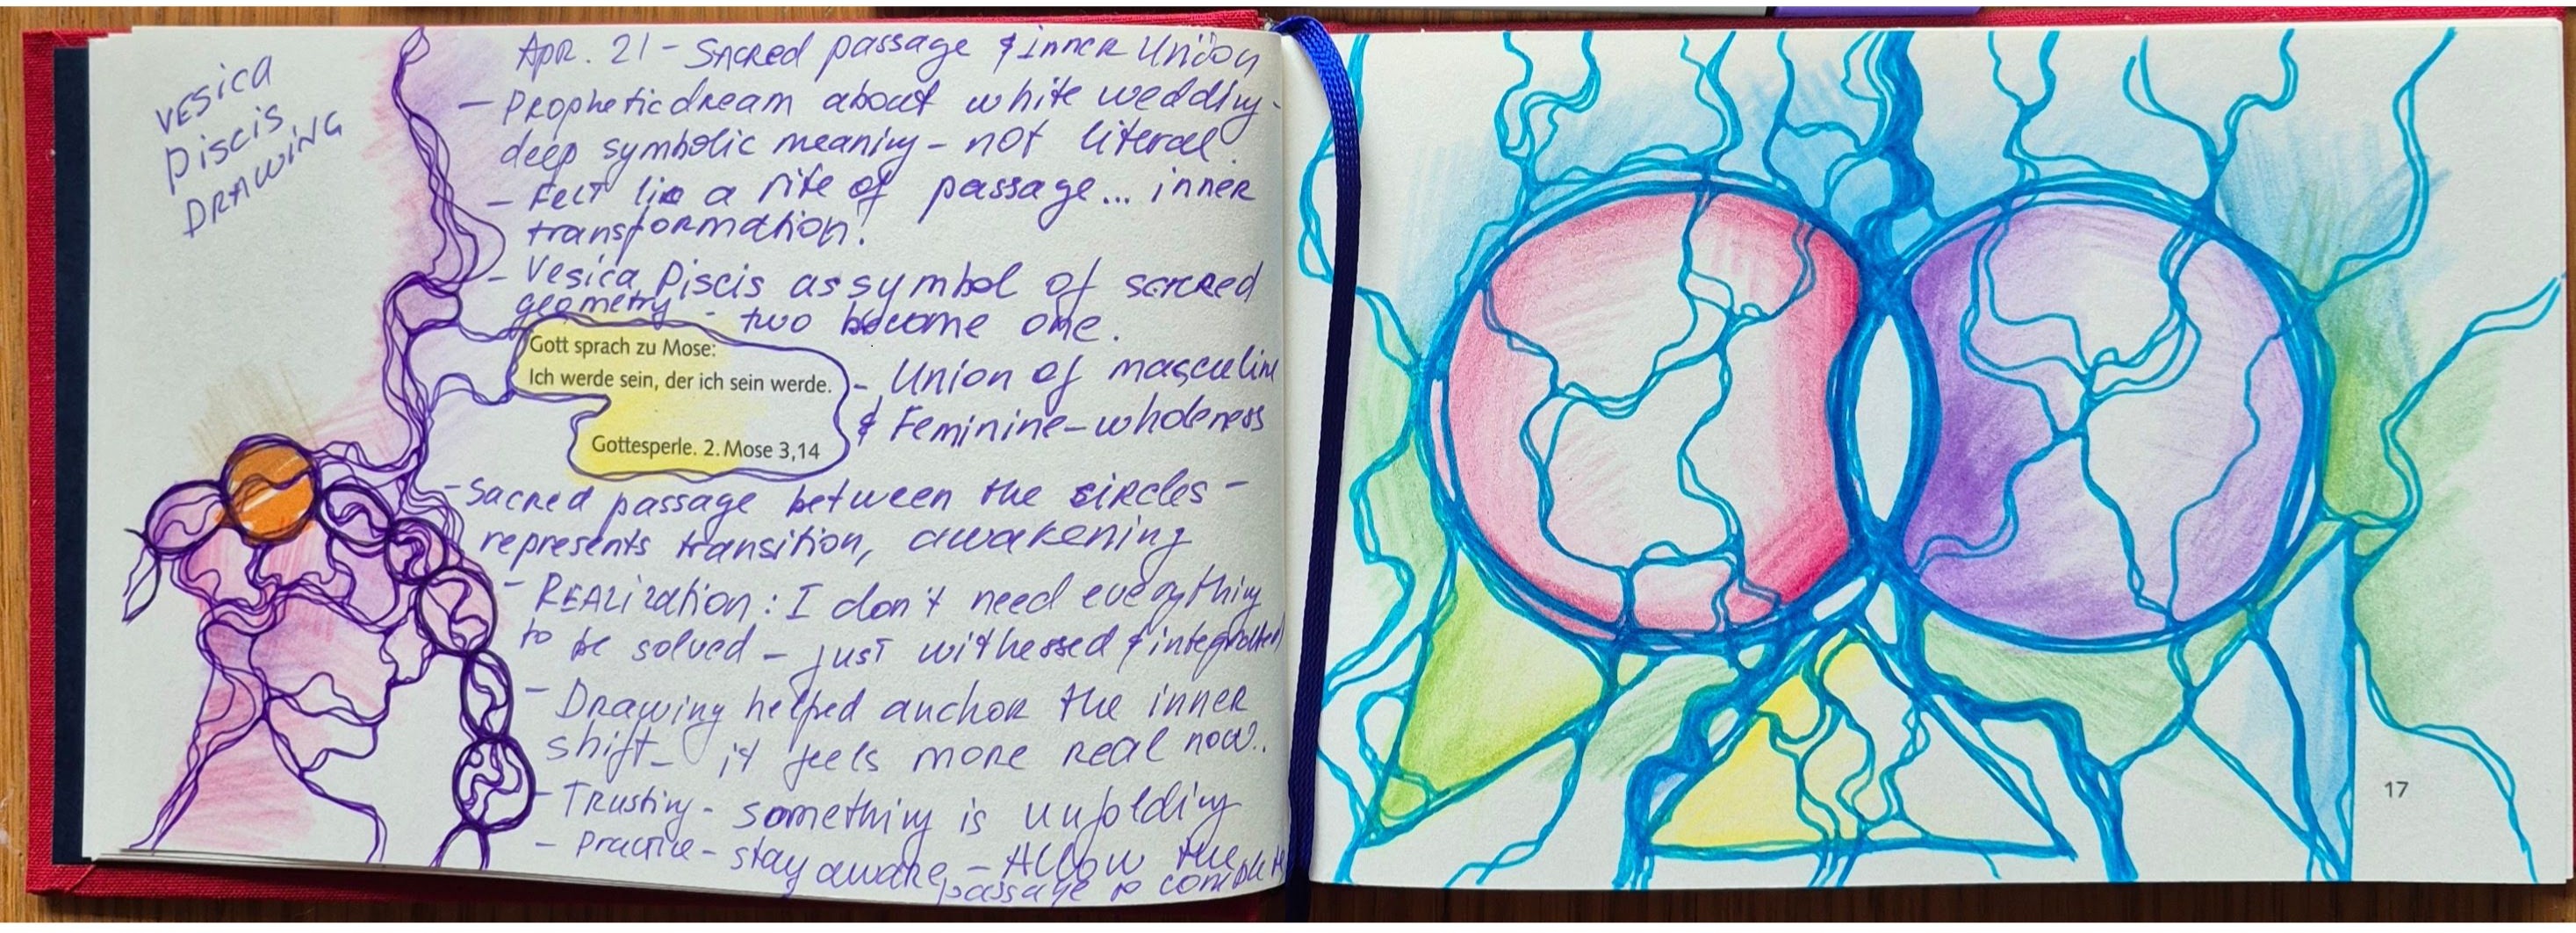 VESICA
PISCIS
DRAWING
Apr. 21 - Sacred passage & inner Union
- Prophetic dream about white wedding -
deep symbolic meaning - not literal.
- Felt like a rite of passage... inner
transformation!
- Vesica Piscis as symbol of sacred
geometry - two become one.
Gott sprach zu Mose:
Ich werde sein, der ich sein werde.
Gottesperle. 2. Mose 3,14
- Union of masculine
& Feminine - wholeness
- Sacred passage between the circles -
represents transition, awakening
- REALization: I don't need everything
to be solved - just witnessed & integrated
- Drawing helped anchor the inner
shift - it feels more real now..
- Trusting - something is unfolding
- Practice - stay aware - Allow the
passage to complete
17